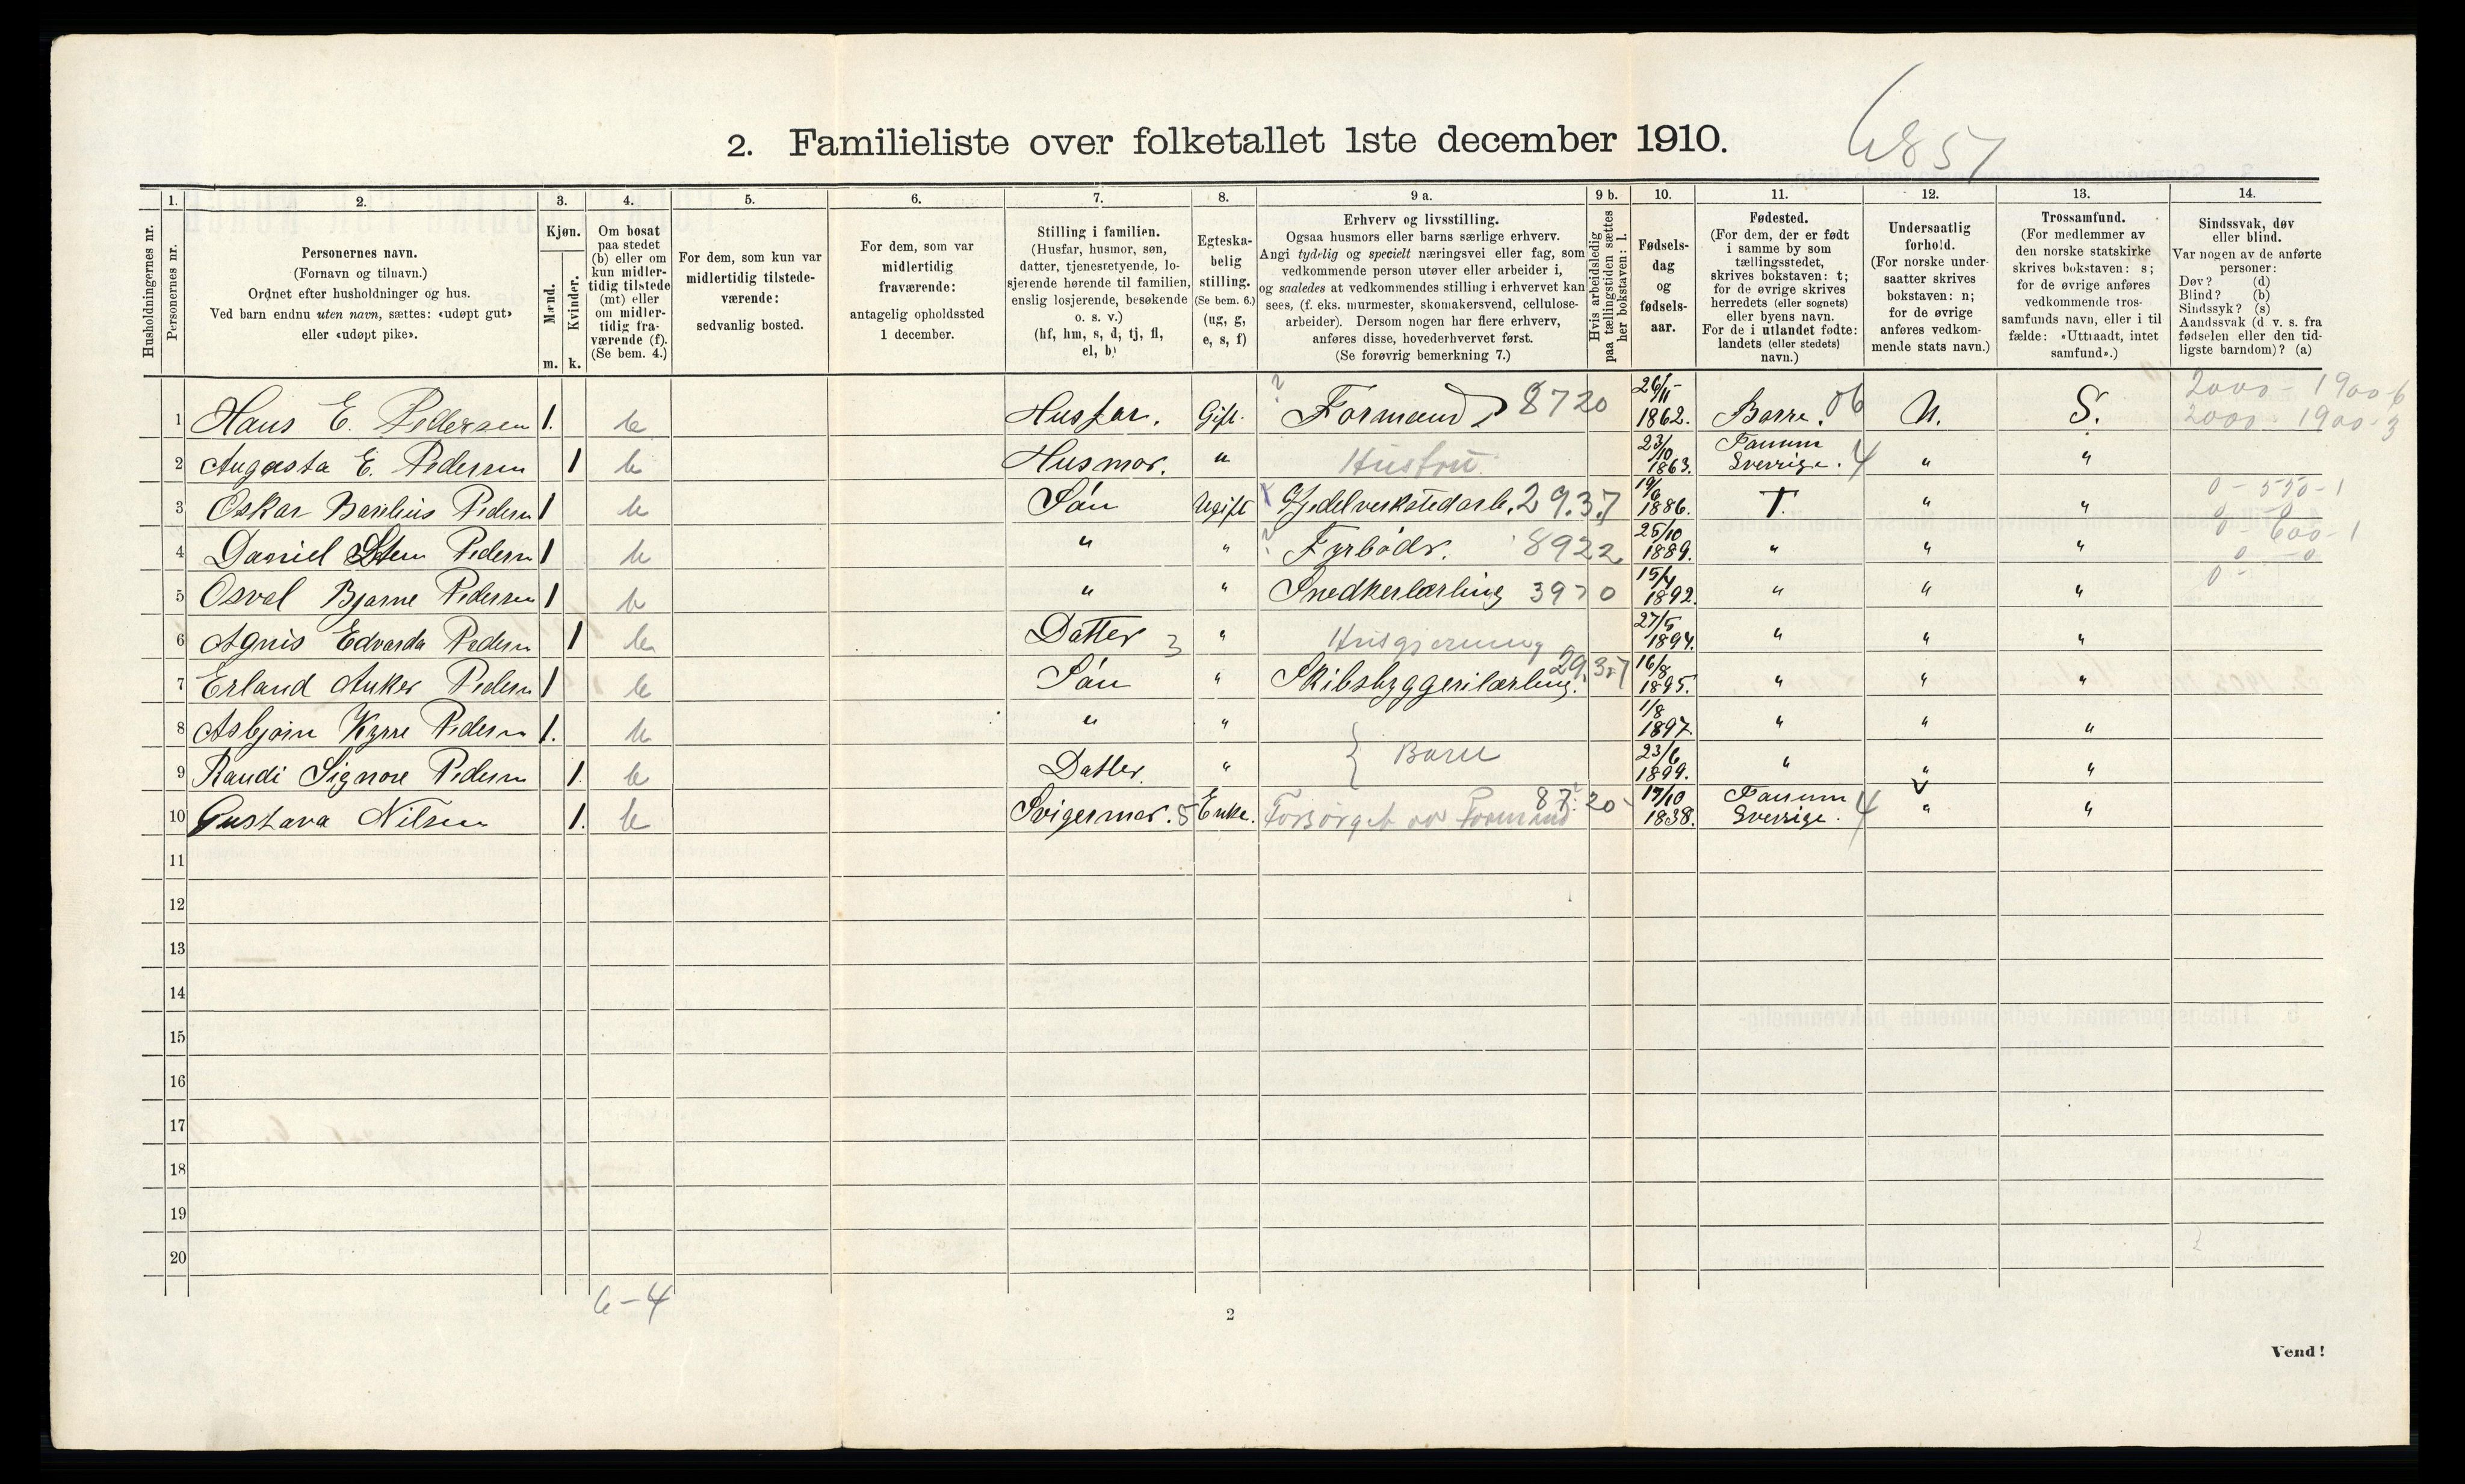 2. Familieliste over folketallet 1ste december 1910.
6851
1. 2. 3. 4. 5. 6. 7. 8. 9 a. 9 b. 10. 11. 12. 13. 14.
Husholdningernes nr.
Personernes nr.
Personernes navn.
(Fornavn og tilnavn.)
Ordnet efter husholdninger og hus.
Ved barn endnu uten navn, sættes: «udøpt gut»
eller «udøpt pike».
Kjøn.
Mænd.
Kvinder.
m. k.
Om bosat
paa stedet
(b) eller om
kun midler-
tidig tilstede
(mt) eller
om midler-
tidig fra-
værende (f).
(Se bem. 4.)
For dem, som kun var
midlertidig tilstede-
værende:
sedvanlig bosted.
For dem, som var
midlertidig
fraværende:
antagelig opholdssted
1 december.
Stilling i familien.
(Husfar, husmor, søn,
datter, tjenestetyende, lo-
sjerende hørende til familien,
enslig losjerende, besøkende
o. s. v.)
(hf, hm, s, d, tj, fl,
el, b)
Egteska-
belig
stilling.
(Se bem. 6.)
(ug, g,
e, s, f)
Erhverv og livsstilling.
Ogsaa husmors eller barns særlige erhverv.
Angi tydelig og specielt næringsvei eller fag, som
vedkommende person utøver eller arbeider i,
og saaledes at vedkommendes stilling i erhvervet kan
sees, (f. eks. murmester, skomakersvend, cellulose-
arbeider). Dersom nogen har flere erhverv,
anføres disse, hovederhvervet først.
(Se forøvrig bemerkning 7.)
Hvis arbeidsledig
paa tællingstiden sættes
her bokstaven: l.
Fødsels-
dag
og
fødsels-
aar.
Fødested.
(For dem, der er født
i samme by som
tællingsstedet,
skrives bokstaven: t;
for de øvrige skrives
herredets (eller sognets)
eller byens navn.
For de i utlandet fødte:
landets (eller stedets)
navn.)
Undersaatlig
forhold.
(For norske under-
saatter skrives
bokstaven: n;
for de øvrige
anføres vedkom-
mende stats navn.)
Trossamfund.
(For medlemmer av
den norske statskirke
skrives bokstaven: s;
for de øvrige anføres
vedkommende tros-
samfunds navn, eller i til
fælde: «Uttraadt, intet
samfund».)
Sindssvak, døv
eller blind.
Var nogen av de anførte
personer:
Døv? (d)
Blind? (b)
Sindssyk? (s)
Aandssvak (d. v. s. fra
fødselen eller den tid-
ligste barndom)? (a)
1 Hans E. Pedersen 1. b Husfar. Gift. ? Formand 8720 26/11 1862. Borre. 06 N. S. 2000 - 1900-6
2000 - 1900-3
2 Augusta E. Pedersen 1 b Husmor. " Hustru 23/10 1863. Tanum Sverrige. 4 " "
3 Oskar Basilius Pedersn 1 b Søn Ugift Kjedelverkstedarb. 29.3.7 19/6 1886. T. " " 0 - 550 - 1
0 - 0
4 Daniel Pedersn 1 b " " ? Fyrbødr. 8922 25/10 1889. " " " 0 - 600 - 1
0 - 0
5 Osval Bjarne Pedersen 1 b " " Snedkerlærling 3970 15/4 1892. " " " 0 -
6 Agnis Edvarda Pedersn 1 b Datter 3 " Husgjerning 27/5 1894. " " "
7 Erland Anker Pedersn 1 b Søn " Skibsbyggerilærling. 29.3.7 16/8 1895. " " "
8 Asbjørn Kyrre Pedersn 1. b " " Barn 1/8 1897. " " "
9 Raudi Signore Pedersn 1. b Datter. " 23/6 1899. " " "
10 Gustava Nilsen 1. b Svigermor. 5 Enke. Forsørget av Formand 87.20 17/10 1838. Tanum Sverrige. 4 " "
11
12
13
14
15
16
17
18
19
20
6-4
2
Vend!